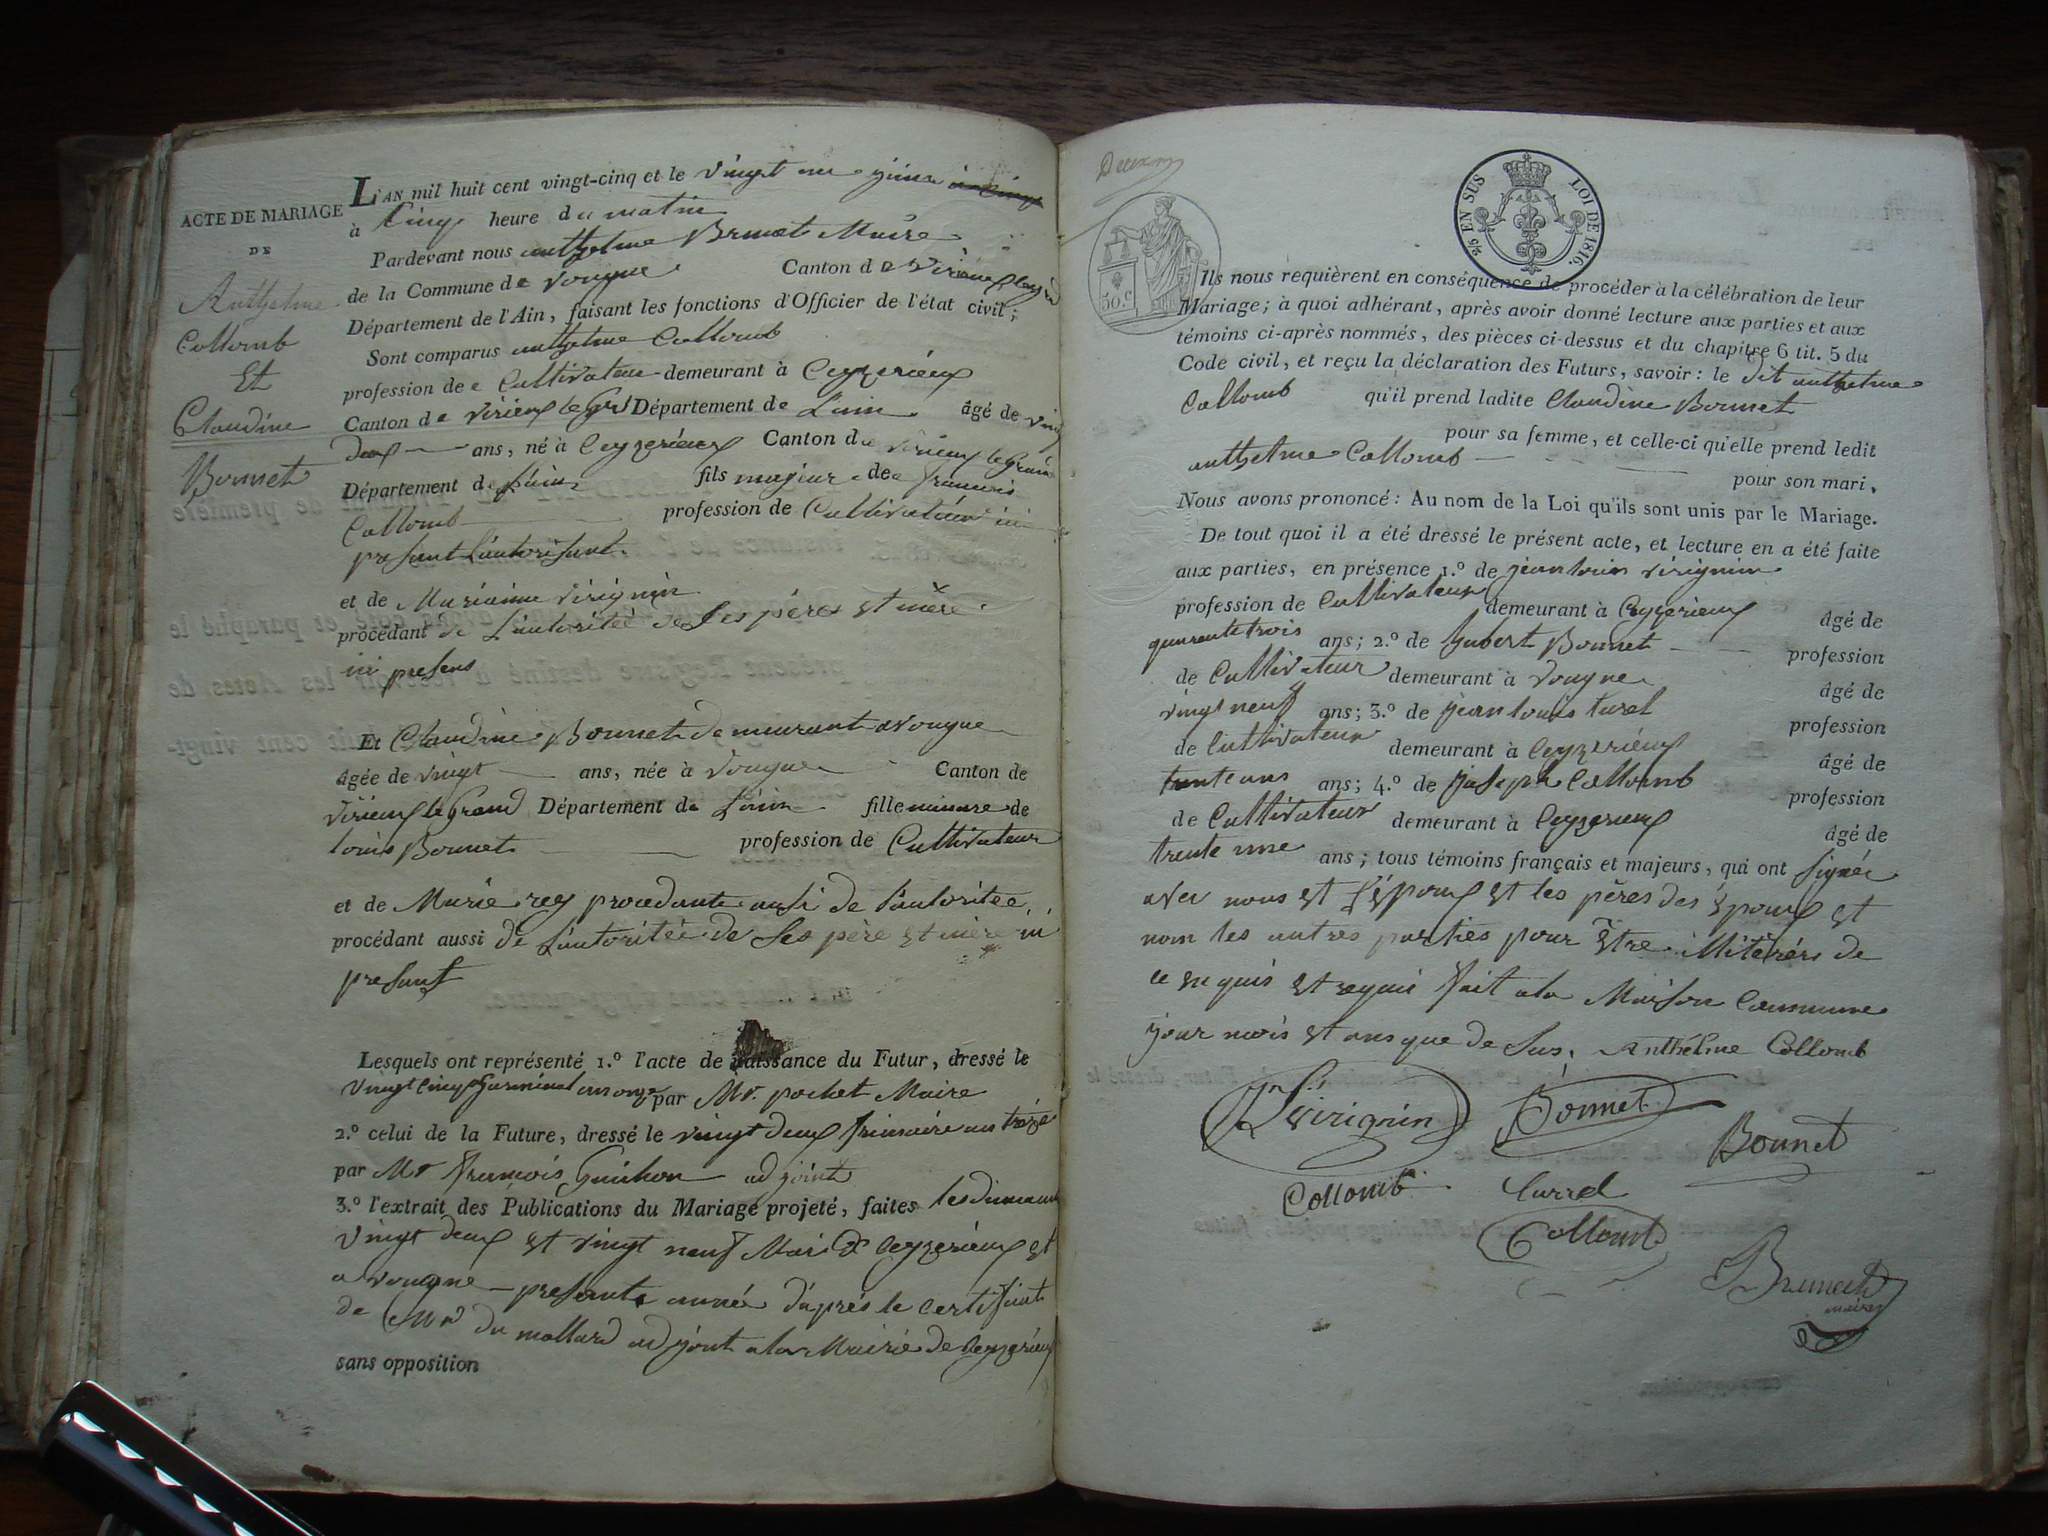 ACTE DE MARIAGE
DE
Anthelme
Collomb
Et
Claudine
Bonnet
L'AN mil huit cent vingt-cinq et le vingt un juin
à cinq heure du matin
Pardevant nous anthelme Brunet Maire
de la Commune de vougne Canton de virieux legrd
Département de l'Ain, faisant les fonctions d'Officier de l'état civil;
Sont comparus anthelme Collomb
profession de Cultivateur demeurant à Ceyzerieux
Canton de virieux le Grd Département de Lain âgé de vingt
deux ans, né à Ceyzerieux Canton de virieux le Grand
Département de Lain fils majeur de francois
Collomb profession de Cultivateur ici
present Lautorisant.
et de Marianne virignin
procédant de Lautorité de Ses pères et mère
ici presens
Et Claudine Bonnet demeurant a vougne
âgée de vingt ans, née à vougne Canton de
virieux le Grand Département de Lain fille mineure de
louis Bonnet profession de Cultivateur
et de Marie rey procedante ausi de Lautoritee
procédant aussi de Lautoritée de Ses père et mère ici
presant
Lesquels ont représenté 1.º l'acte de naissance du Futur, dressé le
vingt cinq Germinal an onze par Mr. pochet Maire
2.º celui de la Future, dressé le vingt deux frimaire an treize
par Mr francois Guichon adjoint
3.º l'extrait des Publications du Mariage projeté, faites les dimanch
vingt deux et vingt neuf Mai a Ceyzerieux et
a vougne presente année dàprés le certificat
de Mr du mollard adjoint a la Mairie de Ceyzerieux
sans opposition
30.c
2/5 EN SUS LOI DE 1816.
Ils nous requièrent en conséquence de procéder à la célébration de leur
Mariage; à quoi adhérant, après avoir donné lecture aux parties et aux
témoins ci-après nommés, des pièces ci-dessus et du chapitre 6 tit. 5 du
Code civil, et reçu la déclaration des Futurs, savoir: le dit anthelme
Collomb qu'il prend ladite Claudine Bonnet
pour sa femme, et celle-ci qu'elle prend ledit
anthelme Collomb
pour son mari,
Nous avons prononcé: Au nom de la Loi qu'ils sont unis par le Mariage.
De tout quoi il a été dressé le présent acte, et lecture en a été faite
aux parties, en présence 1.º de jean louis virignin
profession de Cultivateur demeurant à Ceyzerieux âgé de
quarante trois ans; 2.º de hubert Bonnet profession
de Cultivateur demeurant à vougne âgé de
vingt neuf ans; 3.º de jean louis turel profession
de Cultivateur demeurant à Ceyzerieux âgé de
trente ans ans; 4.º de joseph Collomb profession
de Cultivateur demeurant à Ceyzerieux âgé de
trente une ans; tous témoins français et majeurs, qui ont signée
avec nous et l'époux et les pères des époux et
nom les autres parties pour être illitérérs de
ce enquis et requis fait a la Maison Commune
jour mois et ans que de Sus. Anthelme Collomb
Jn Ls virignin Bonnet Bonnet
Collomb turrel
Collomb
Brunet
maire